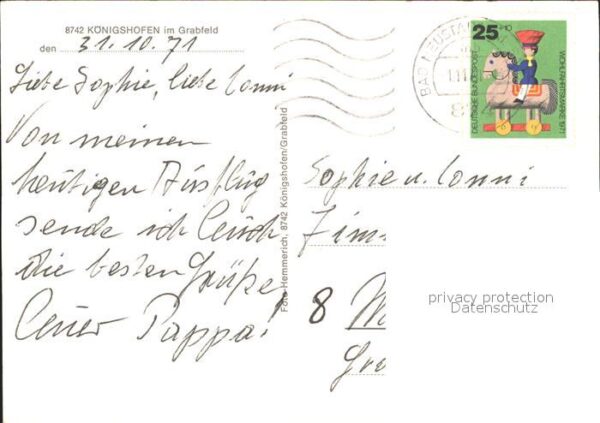 8742 KÖNIGSHOFEN im Grabfeld
den 31.10.71
Liebe Sophie, liebe Conni
Von meinen
heutigen Ausflug
sende ich Euch
die besten Grüße
Euer Pappa!
Foto-Hemmerich, 8742 Königshofen/Grabfeld
BAD NEUSTADT
25+10
DEUTSCHE BUNDESPOST
WOHLFAHRTSMARKE 1971
Sophie u. Conni
Zim
8 M
Gro
privacy protection
Datenschutz